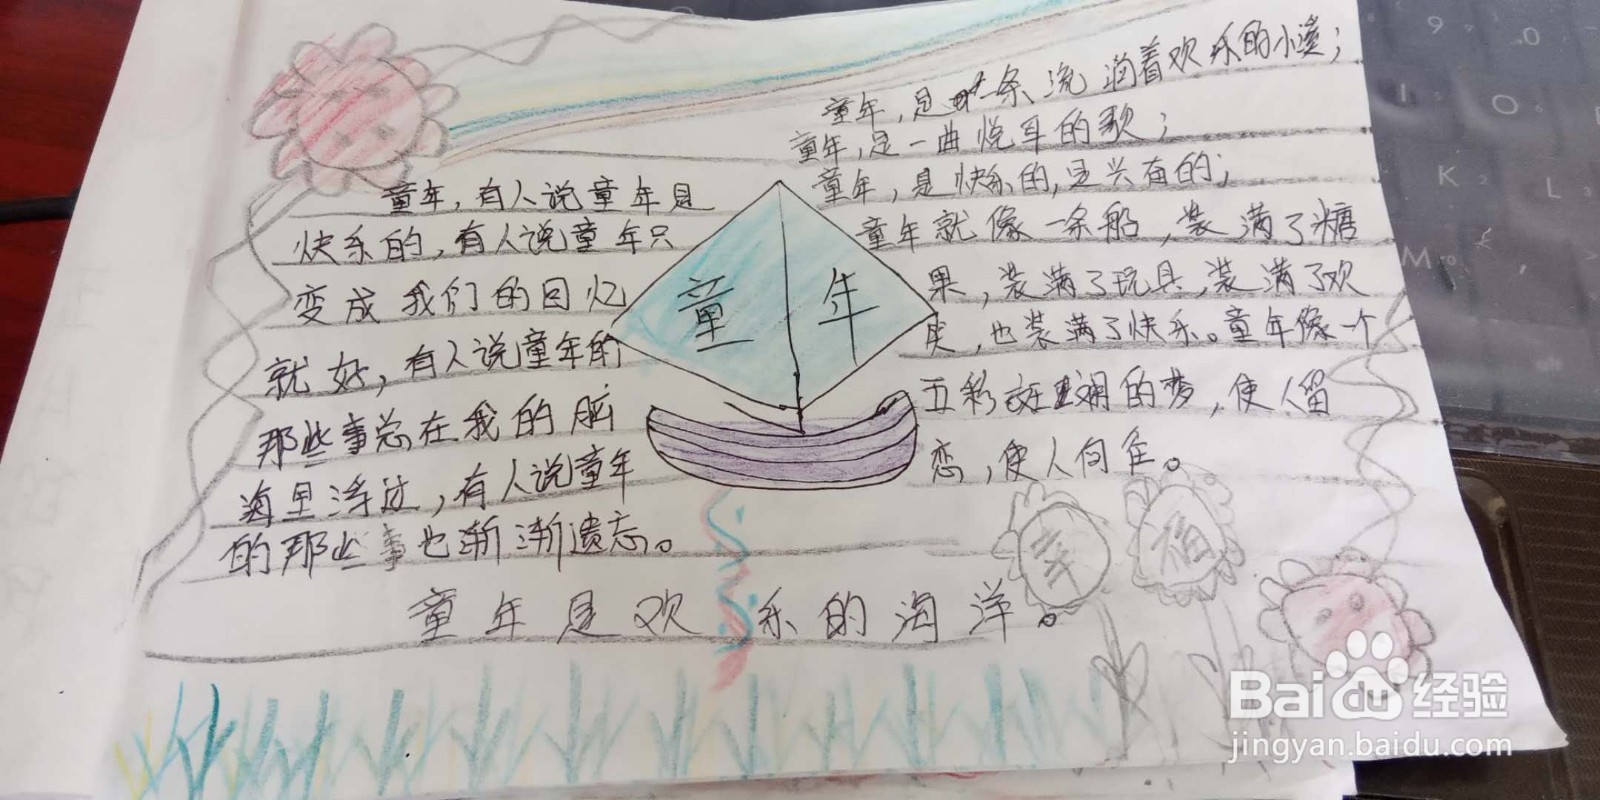 童年，有人说童年是
快乐的，有人说童年只
变成我们的回忆
就好，有人说童年的
那些事总在我的脑
海里浮过，有人说童年
的那些事也渐渐遗忘。
童年
童年，是一条流淌着欢乐的小溪；
童年，是一曲悦耳的歌；
童年，是快乐的，是兴奋的；
童年就像一条船，装满了糖
果，装满了玩具，装满了欢
笑，也装满了快乐。童年像一个
五彩斑斓的梦，使人留
恋，使人向往。
童年是欢乐的海洋。
幸福
Baidu经验
jingyan.baidu.com